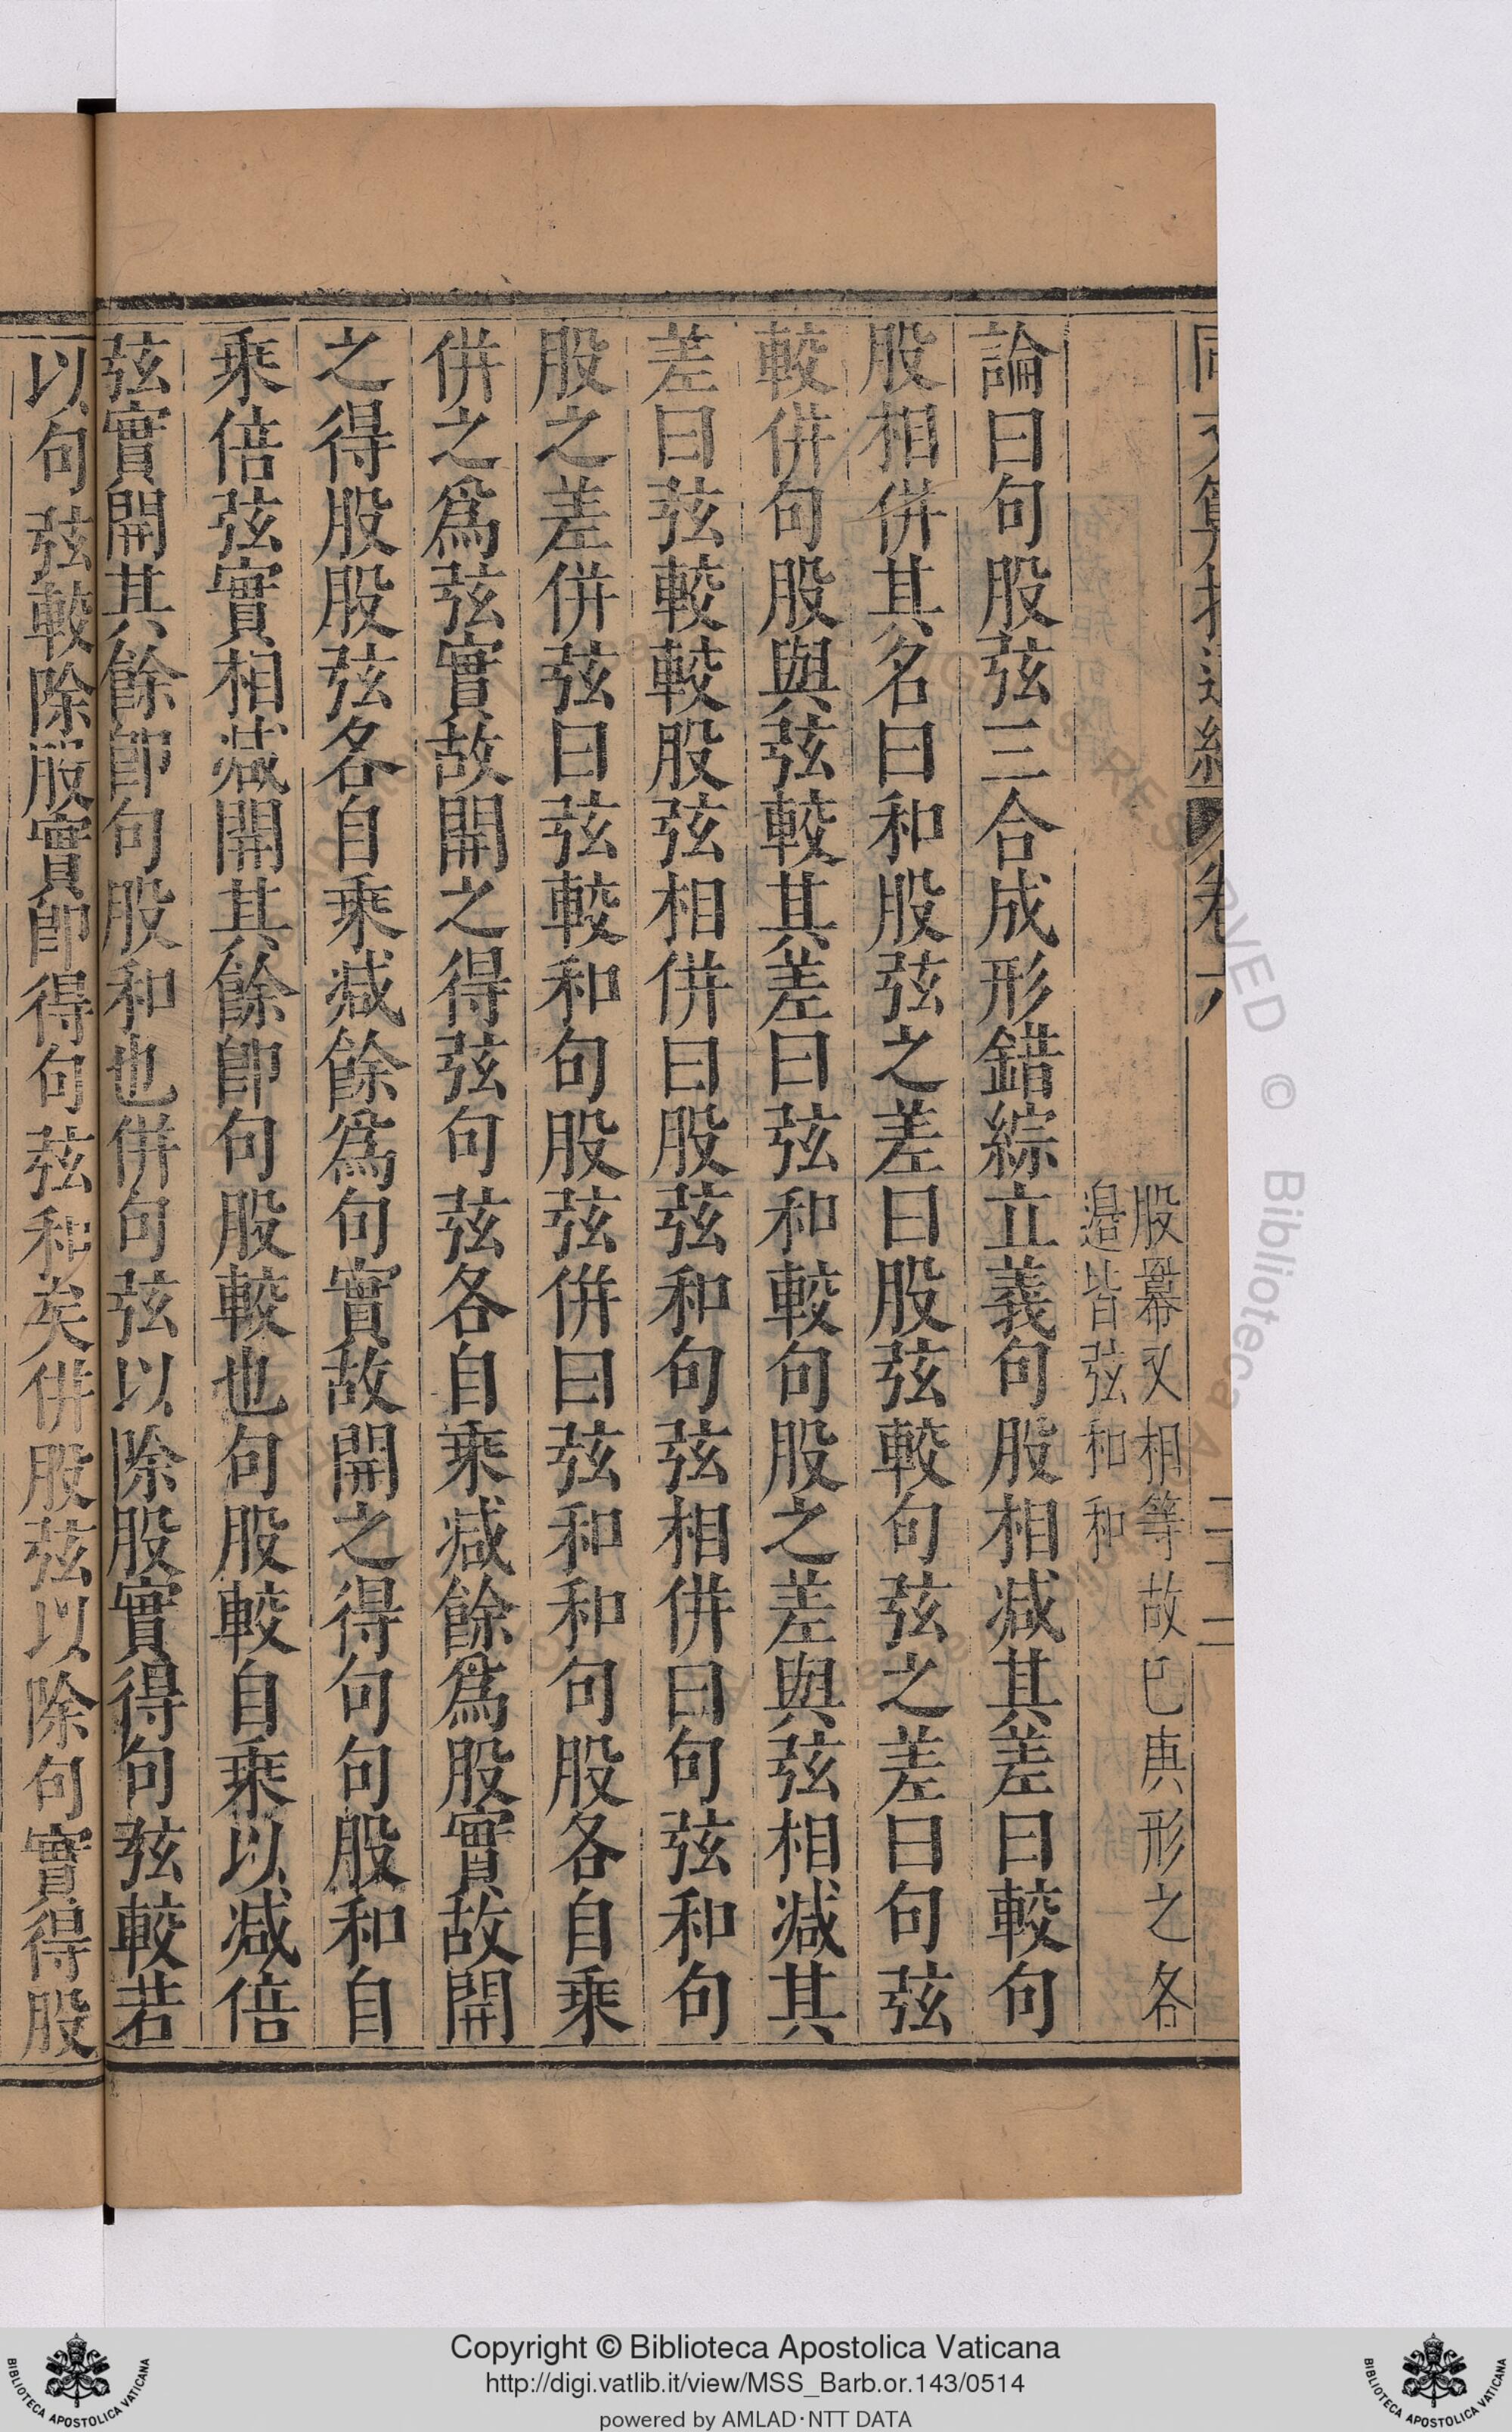 股冪又相等故已庚形之各
邉皆弦和和
論曰句股弦三合成形錯綜立義句股相减其差曰較句
股相併其名曰和股弦之差曰股弦較句弦之差曰句弦
較併句股與弦較其差曰弦和較句股之差與弦相减其
差曰弦較較股弦相併曰股弦和句弦相併曰句弦和句
股之差併弦曰弦較和句股弦併曰弦和和句股各自乘
併之爲弦實故開之得弦句弦各自乘减餘爲股實故開
之得股股弦各自乘减餘爲句實故開之得句句股和自
乘倍弦實相减開其餘卽句股較也句股較自乘以减倍
弦實開其餘卽句股和也併句弦以除股實得句弦較若
以句弦較除股實卽得句弦和矣併股弦以除句實得股
Copyright © Biblioteca Apostolica Vaticana
http://digi.vatlib.it/view/MSS_Barb.or.143/0514
powered by AMLAD·NTT DATA
BIBLIOTECA APOSTOLICA VATICANA
BIBLIOTECA APOSTOLICA VATICANA